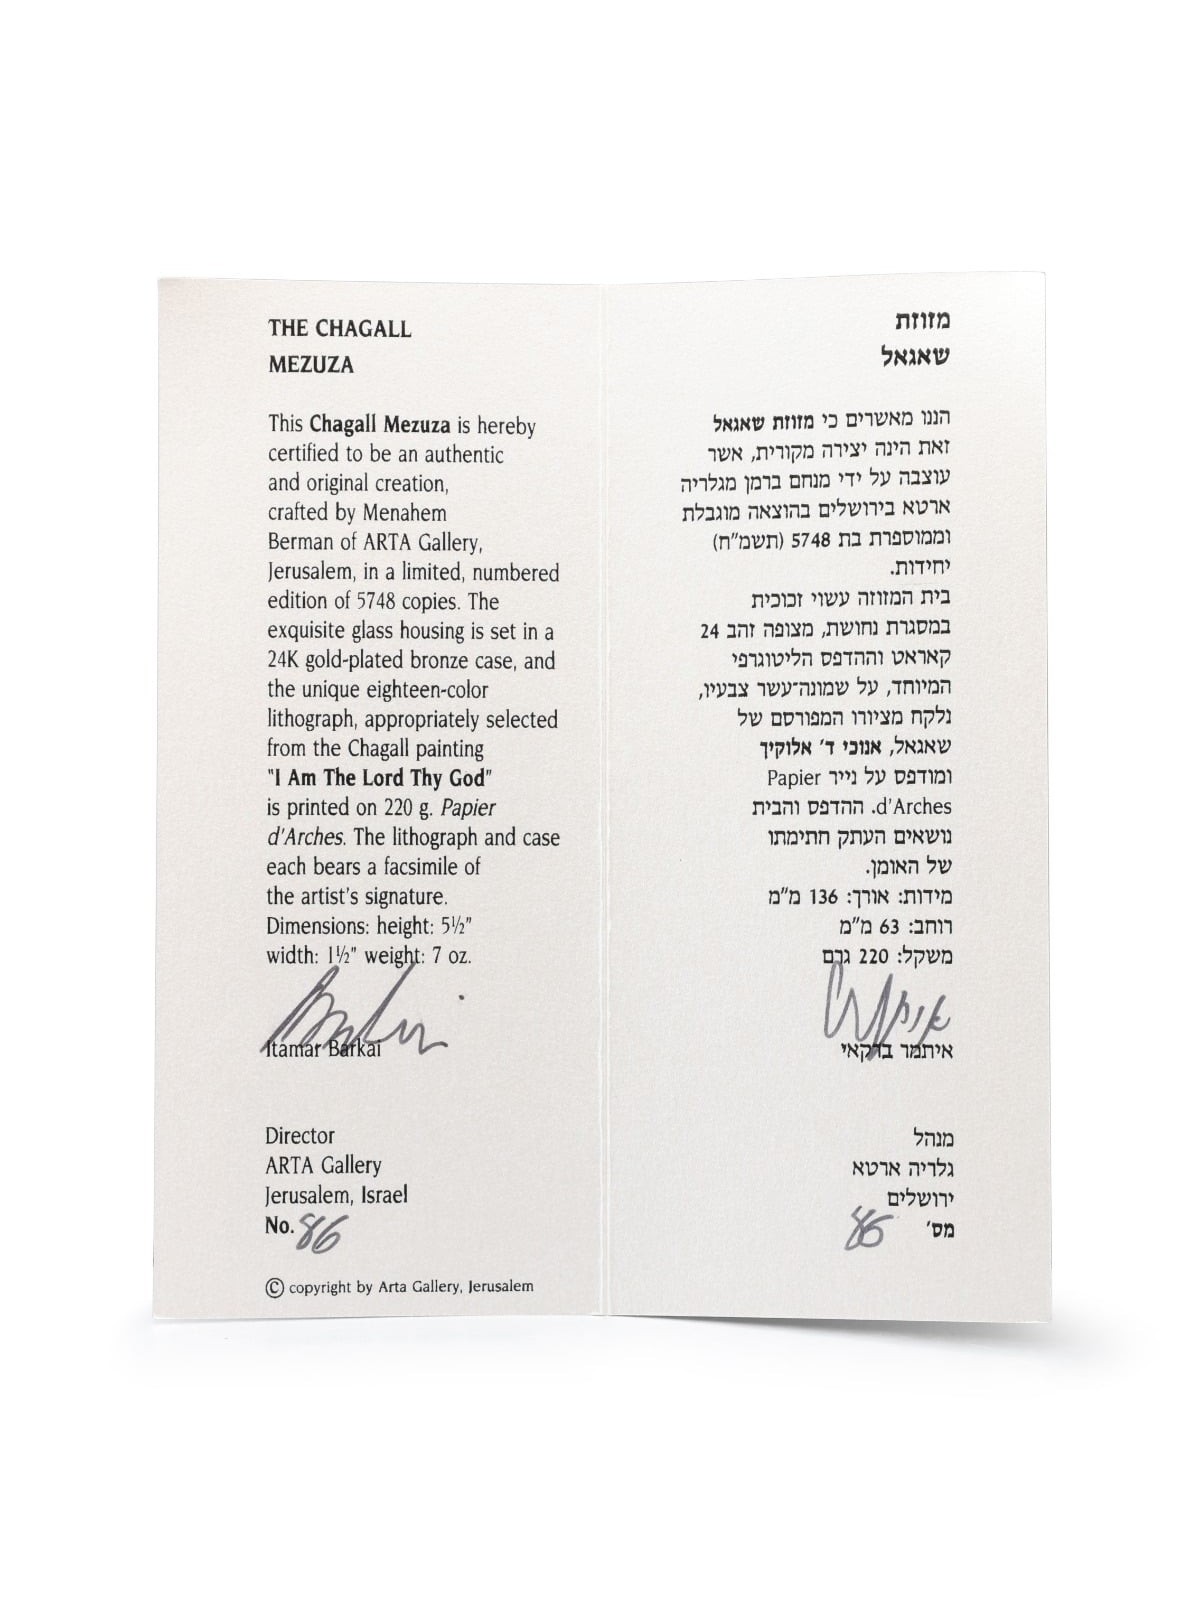 THE CHAGALL
MEZUZA
This Chagall Mezuza is hereby
certified to be an authentic
and original creation,
crafted by Menahem
Berman of ARTA Gallery,
Jerusalem, in a limited, numbered
edition of 5748 copies. The
exquisite glass housing is set in a
24K gold-plated bronze case, and
the unique eighteen-color
lithograph, appropriately selected
from the Chagall painting
"I Am The Lord Thy God"
is printed on 220 g. Papier
d'Arches. The lithograph and case
each bears a facsimile of
the artist's signature.
Dimensions: height: 5½"
width: 1½" weight: 7 oz.
Itamar Barkai
Director
ARTA Gallery
Jerusalem, Israel
No. 86
© copyright by Arta Gallery, Jerusalem
מזוזת
שאגאל
הננו מאשרים כי מזוזת שאגאל
זאת הינה יצירה מקורית, אשר
עוצבה על ידי מנחם ברמן מגלריה
ארטא בירושלים בהוצאה מוגבלת
וממוספרת בת 5748 (תשמ"ח)
יחידות.
בית המזוזה עשוי זכוכית
במסגרת נחושת, מצופה זהב 24
קאראט וההדפס הליטוגרפי
המיוחד, על שמונה־עשר צבעיו,
נלקח מציורו המפורסם של
שאגאל, אנוכי ד' אלוקיך
ומודפס על נייר Papier
d'Arches. ההדפס והבית
נושאים העתק חתימתו
של האומן.
מידות: אורך: 136 מ"מ
רוחב: 63 מ"מ
משקל: 220 גרם
איתמר ברקאי
מנהל
גלריה ארטא
ירושלים
מס' 86